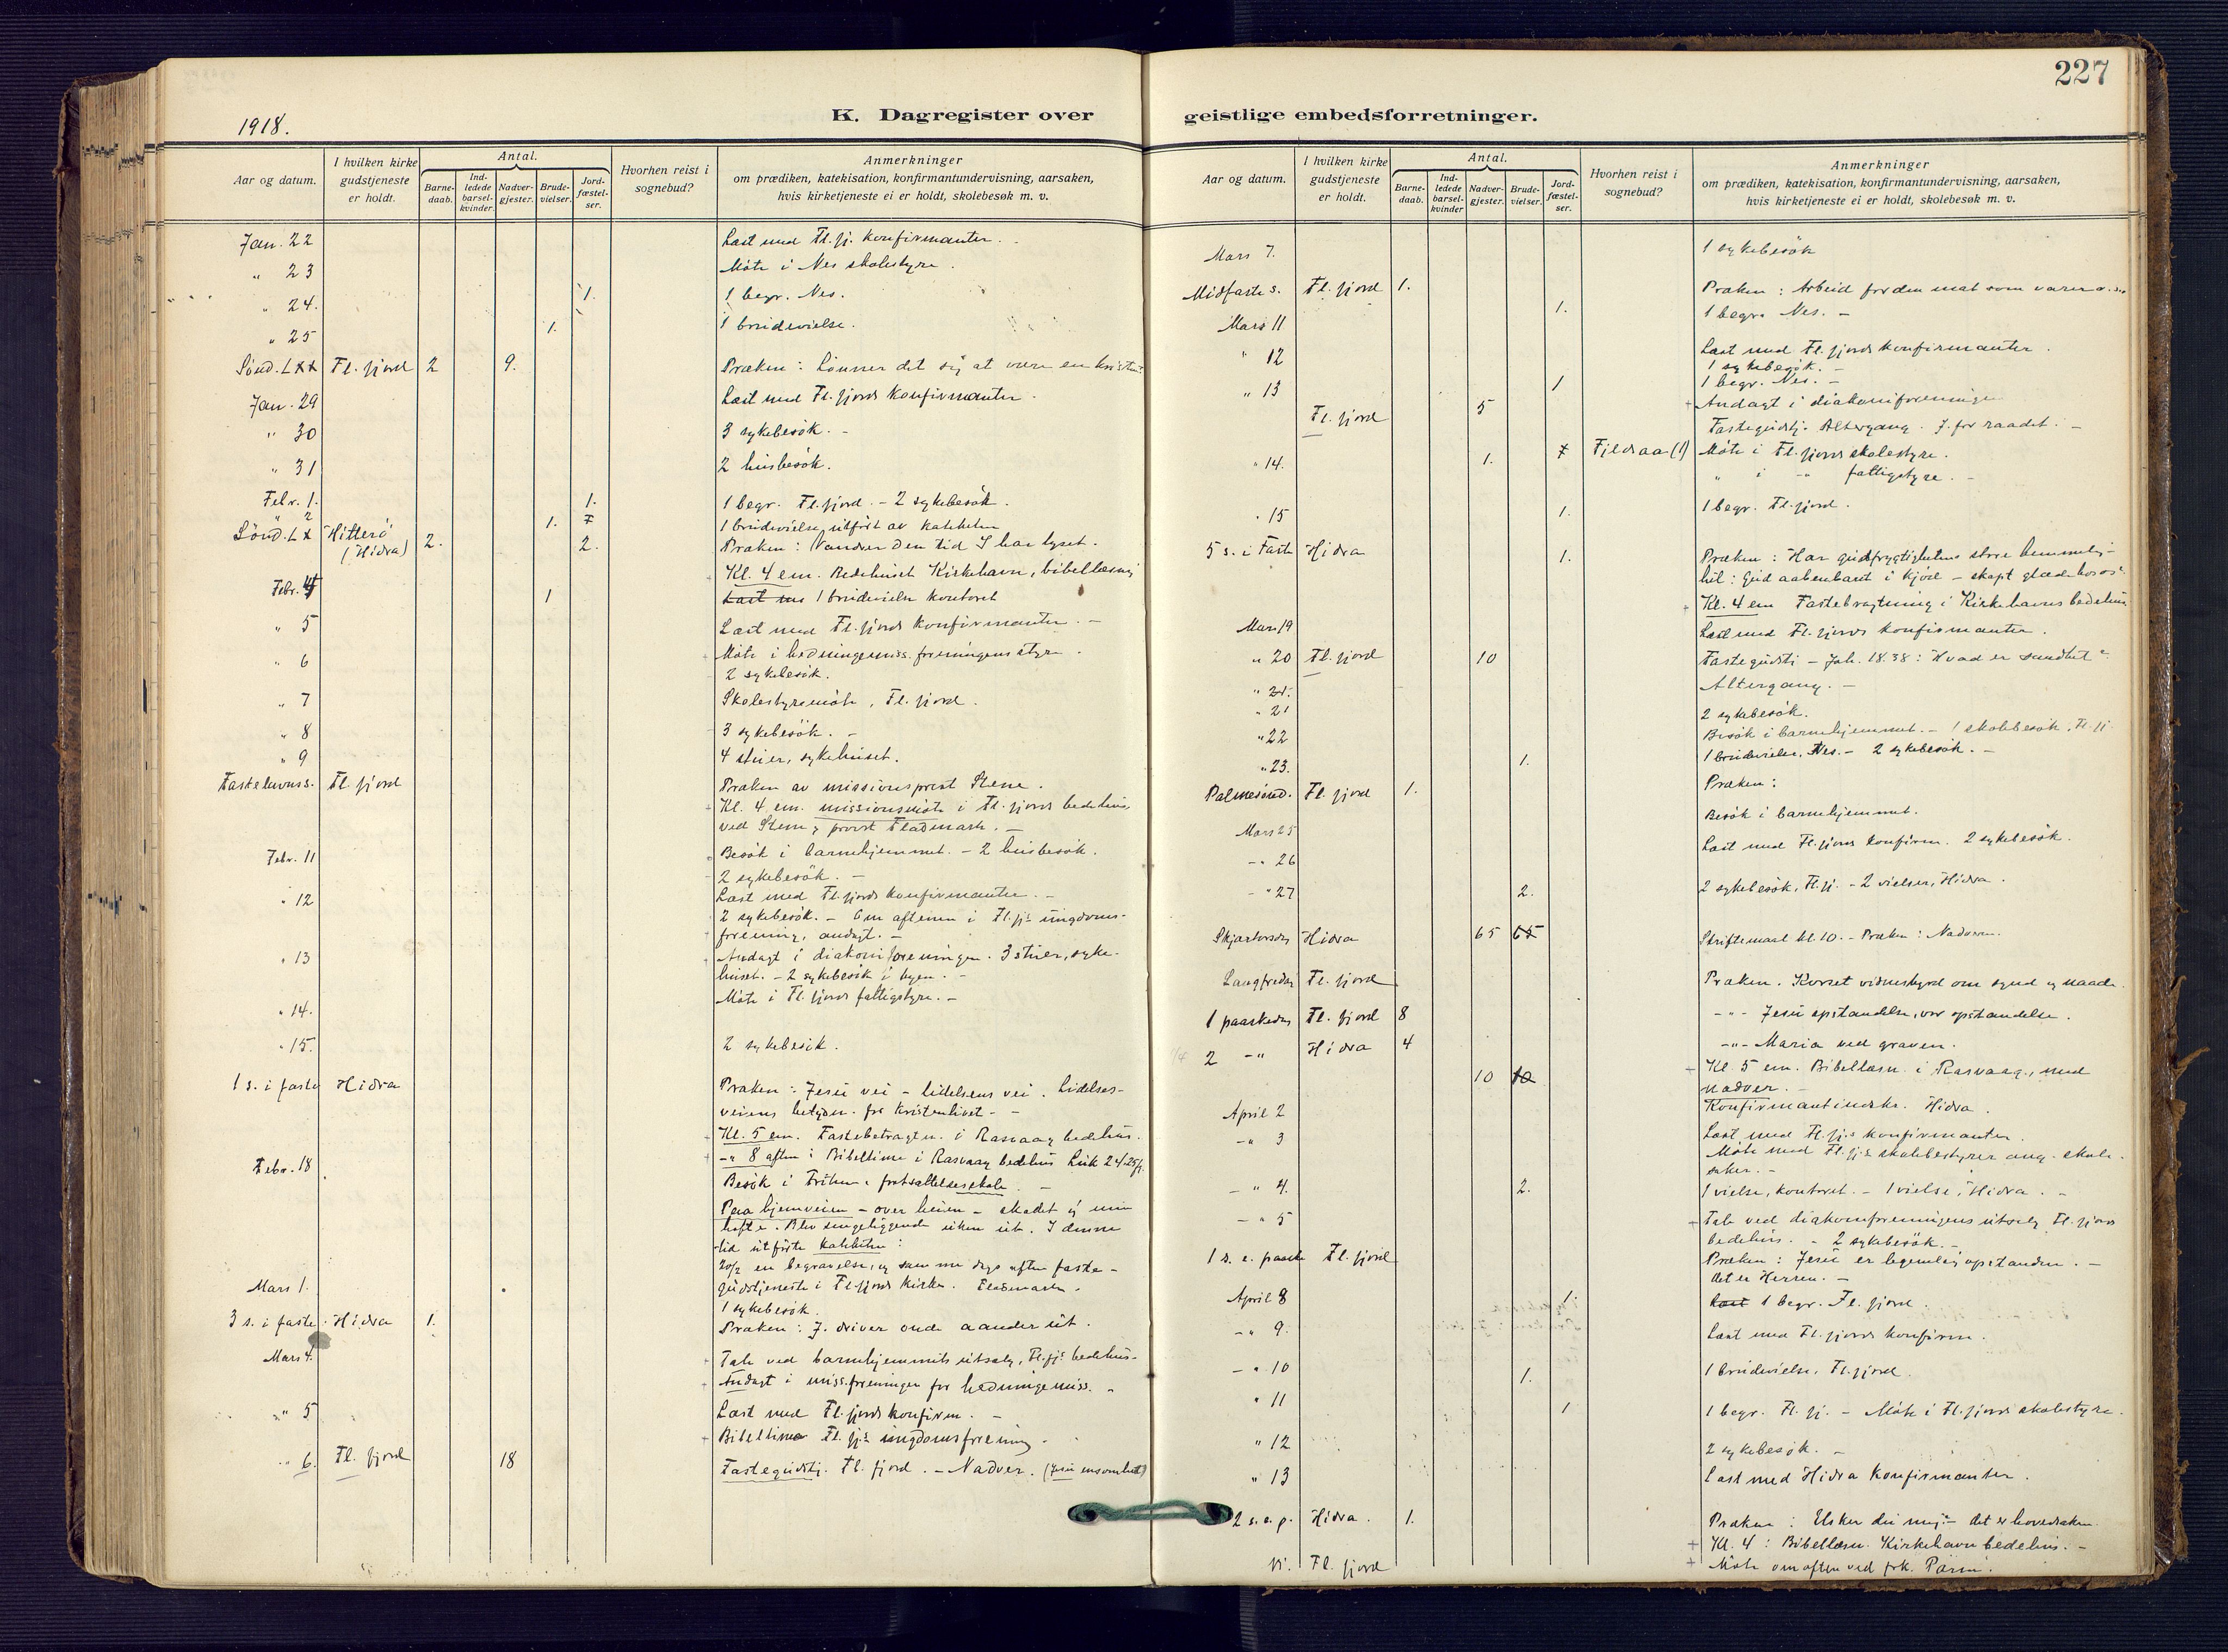 227
K. Dagregister over geistlige embedsforretninger.
1918.
Aar og datum.
I hvilken kirke gudstjeneste er holdt.
Antal.
Barne-daab.
Ind-ledede barsel-kvinder.
Nadver-gjester.
Brude-vielser.
Jord-fæstel-ser.
Hvorhen reist i sognebud?
Anmerkninger
om prædiken, katekisation, konfirmantundervisning, aarsaken,
hvis kirketjeneste ei er holdt, skolebesøk m. v.
Jan. 22 Læst med Fl.fj. konfirmanter.
" 23 Møte i Nes skolestyre.
" 24. 1. 1 begr. Nes.
" 25 1. 1 brudevielse.
Sönd. LXX Fl. fjord 2 9. Præken: Lönner det sig at være en kristen
Jan. 29 Læst med Fl. fjords konfirmanter.
" 30 3 sykebesök. -
" 31 2 husbesök.
Febr. 1. 1. 1 begr. Fl. fjord. - 2 sykebesök.
" 2 1. 1 brudevielse, utfört av kateketen
Sönd. LX Hitterö (Hidra) 2. 2. Præken: Vandrer den tid I har lyset.
Kl. 4 em. Bedehuset Kirkehavn, bibellæsning
Febr. 4 1 Læst 1 brudevielse kontoret
" 5 Læst med Fl. fjords konfirmanter. -
" 6 Møte i hedningemiss. foreningens styre.
2 sykebesök.
" 7 Skolestyremøte, Fl. fjord.
" 8 3 sykebesök. -
" 9 4 stuer, sykehuset.
Fastelavnss. Fl. fjord Præken av missionsprest Stene.
Kl. 4 em. missionsmöte i Fl. fjords bedehus
ved Stene, provst Fladmark. -
Febr. 11 Besök i barnehjemmet. - 2 husbesök.
2 sykebesök. -
" 12 Læst med Fl. fjords konfirmanter. -
2 sykebesök. - Om aftenen i Fl. fj.s ungdoms-
forening, andagt. -
" 13 Andagt i diakoniforeningen. 3 stuer, syke-
huset. - 2 sykebesök i byen. -
" 14. Møte i Fl. fjords fattigstyre. -
" 15. 2 sykebesök.
1 s. i faste Hidra Præken: Jesu vei - lidelsens vei. Lidelses-
veiens betydn. for kristenlivet. -
Kl. 5 em. Fastebetragtn. i Rasvaag bedehus.
-"- 8 aften: Bibeltime i Rasvaag bedehus Luk 24
Febr. 18 Besök i fortsættelsesskole. -
Paa hjemveien - over heien - skadet jeg min
hofte. Blev sengeliggende uken ut. I denne
tid utförte kateketen:
20/2 en begravelse, og samme dags aften faste-
gudstjeneste i Fl. fjords kirke. Fladmark.
Mars 1. 1 sykebesök.
3 s. i faste. Hidra 1. Præken: J. driver onde aander ut.
Mars 4. Tale ved barnehjemmets utsalg, Fl.fj.s bedehus.
Andagt i miss.foreningen for hedningemiss. -
" 5 Læst med Fl. fjords konfirm. -
Bibeltime Fl. fj.s ungdomsforening.
" 6. Fl. fjord 18 Fastegudstj. Fl. fjord. - Nadver. (Jesu ensomhet)
Aar og datum.
I hvilken kirke gudstjeneste er holdt.
Antal.
Barne-daab.
Ind-ledede barsel-kvinder
Nadver-gjester.
Brude-vielser.
Jord-fæstel-ser.
Hvorhen reist i sognebud?
Anmerkninger
om prædiken, katekisation, konfirmantundervisning, aarsaken,
hvis kirketjeneste ei er holdt, skolebesøk m. v.
Mars 7. 1 sykebesök
Midfaste s. Fl. fjord 1. Præken: Arbeid for den mat som varer
Mars 11 1. 1 begr. Nes. -
" 12 Læst med Fl. fjords konfirmanter.
1 sykebesök. -
" 13 1 1 begr. Nes. -
Andagt i diakoniforeningen
Fl. fjord 5 Fastegudstj. Altergang. J. for raadet. -
" 14. 1. Fjeldsaa (1) Møte i Fl. fjords skolestyre.
" i -"- fattigstyre. -
" 15 1. 1 begr. Fl. fjord.
5 s. i Faste Hidra 1. Præken: Har gudfrygtighetens store hemmelig-
het: Gud aabenbaret i kjöd - skapt glæde hos os?
Kl. 4 em Fastebetragtning i Kirkehavns bedehus
Mars 19 Læst med Fl. fjords konfirmanter.
" 20 Fl. fjord 10 Fastegudstj - Joh. 18.38: Hvad er sandhet?
Altergang. -
" 21.
" 21 2 sykebesök.
" 22 Besök i barnehjemmet. - 1 skolebesök, Fl. fj.
" 23. 1. 1 brudevielse, Nes. - 2 sykebesök. -
Palmesönd. Fl. fjord 1. Præken:
Mars 25 Besök i barnehjemmet.
-"- 26 Læst med Fl. fjords konfirm. 2 sykebesök.
-"- 27 2. 2 sykebesök, Fl. fj. - 2 vielser, Hidra.
Skjærtorsdag Hidra 65 65 Skriftemaal kl. 10. - Præken: Nadveren.
Langfredag Fl. fjord Præken. Korset vidnesbyrd om synd og naade.
1 paaskedag Fl. fjord 8 -"- Jesu opstandelse, vor opstandelse.
1/4 2 -"- Hidra 4 -"- Maria ved graven.
10 10 Kl. 5 em. Bibellæsn. i Rasvaag, med
nadver. -
April 2 Konfirmantindskr. Hidra.
-"- 3 Læst med Fl. fj.s konfirmanter.
Møte med Fl. fj.s skolebestyrer ang. skole-
saker. -
-"- 4. 2. 1 vielse, kontoret. - 1 vielse, Hidra. -
-"- 5 Tale ved diakoniforeningens utsalg Fl. fjords
bedehus. - 2 sykebesök. -
1 s. e. paaske Fl. fjord Præken: Jesus er legemlig opstanden. -
Det er Herren. -
April 8 1. Læst 1 begr. Fl. fjord.
-"- 9. Læst med Fl. fjords konfirm.
-"- 10 1. 1 brudevielse, Fl. fjord.
" 11 1 1 begr. Fl. fj. - Møte i Fl. fjords skolestyre.
" 12 2 sykebesök. -
" 13 Læst med Hidra konfirmanter.
2 s. e. p. Hidra. 1. Præken: Elsker du mig? - det er hovedsaken
Kl. 4: Bibellæsn. Kirkehavn bedehus. -
Fl. fjord Møte om aften ved frk.